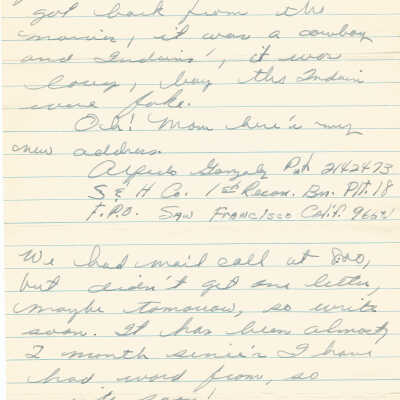 got back from the
movies, it was a cowboy
and Indains', it was
lousy, boy the Indain
were fake.
Oh! Mom here's my
new address.
Alfredo Gonzalez Pvt 2142473
S & H Co. 1st Recon. Bn. Plt. 18
F.P.O. San Francisco Calif. 96691
We had mail call at 8:00,
but didn't get one letter,
maybe tomorrow, so write
soon. It has been almost
2 month sinie's I have
had word from, so
soon!